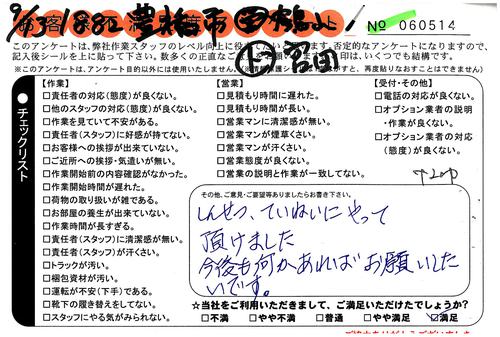 9/13 1882 豊橋市
No 060514
このアンケートは、弊社作業スタッフのレベル向上に
否定的なアンケートになりますので、
記入後シールを上に貼って下さい。
印は、いくつでも結構です。
※このアンケートは、アンケート目的以外には使用いたしません。
再度貼りなおすことはできません。
チェックリスト
【作業】
□責任者の対応(態度)が良くない。
□他のスタッフの対応(態度)が良くない。
□作業を見ていて不安がある。
□責任者(スタッフ)に好感が持てない。
□お客様への挨拶が出来ていない。
□ご近所への挨拶・気遣いが無い。
□作業開始前の内容確認がなかった。
□作業開始時間が遅れた。
□荷物の取り扱いが雑である。
□お部屋の養生が出来ていない。
□作業時間が長すぎる。
□責任者(スタッフ)に清潔感が無い。
□責任者(スタッフ)が汗くさい。
□トラックが汚い。
□梱包資材が汚い。
□運転が不安(下手)である。
□靴下の履き替えをしてない。
□スタッフにやる気がみられない。
【営業】
□見積もり時間に遅れた。
□見積もり時間が長い。
□営業マンに清潔感が無い。
□営業マンが煙草くさい。
□営業マンが汗くさい。
□営業態度が良くない。
□営業の説明と作業が一致してない。
【受付・その他】
□電話の対応が良くない。
□オプション業者の説明
・作業が良くない。
□オプション業者の対応
(態度)が良くない。
その他、ご意見・ご要望等ありましたらお書き下さい。
しんせつ、ていねいにやって
頂けました
今後も何かあればお願いした
いです。
☆当社をご利用いただきまして、ご満足いただけたでしょうか?
□不満 □やや不満 □普通 □やや満足 ☑満足